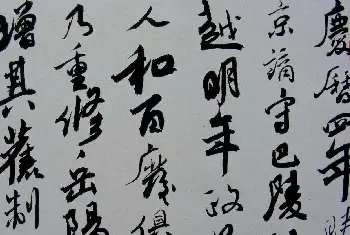 慶曆四年
京謫守巴陵
越明年政
人和百廢俱
乃重修岳陽
增其舊制